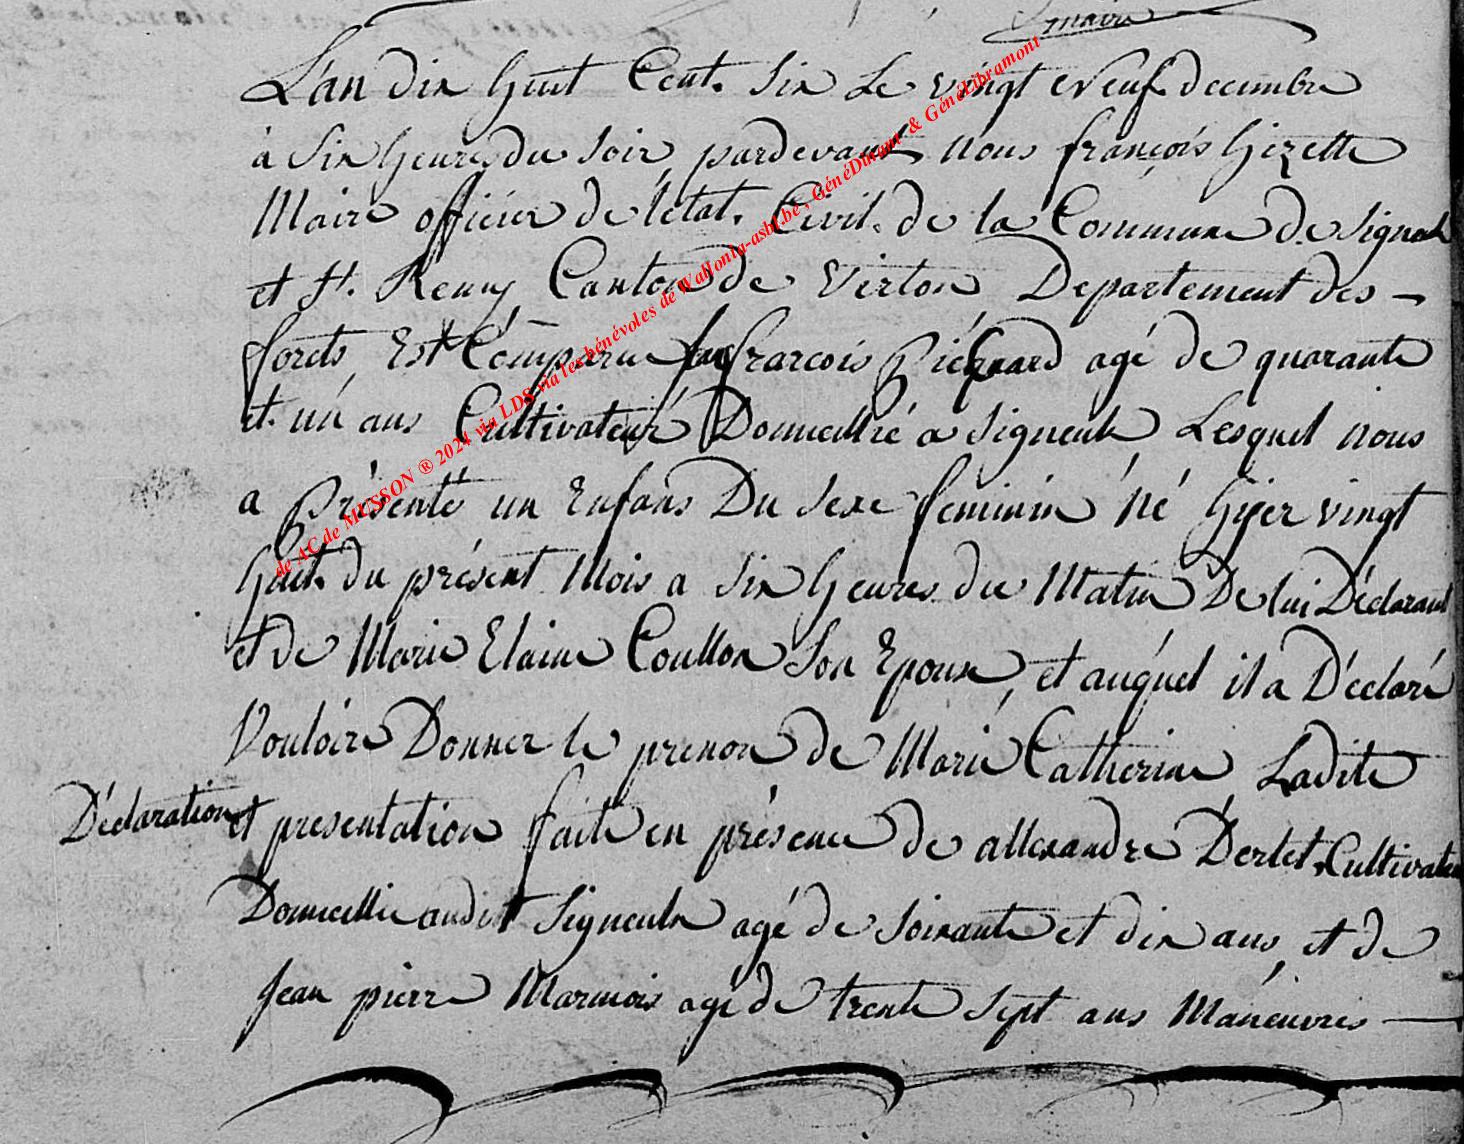 maire
L'an dix huit Cent. Six Le vingt neuf decembre
à Six heures du Soir, pardevant nous françois Gizette
Maire officier de l'état. Civil. de la Commune de Signeulx
et St. Remy Canton de Virton Departement des —
forets, Est Comparu françois Pierrard agé de quarante
et un ans Cultivateur Domicillié a Signeulx Lesquel nous
a Présenté un Enfans Du Sexe feminin né hyer vingt
huit. du présent Mois a Six heures du Matin De lui Déclarant
et de Marie Elaine Coullon Son Epoux, et auquel il a Déclaré
Vouloire Donner le prenon de Marie Catherine, Ladite
Déclaration et presentation faite en présence de allexandre Derlet, Cultivateur
Domicillié audit Signeulx agé de Soixante et dix ans, et de
Jean pierre Marmois agé de trente Sept ans Maneuvres —
de AC de MUSSON ® 2024 via LDS via les bénévoles de Wallonia-asbl.be , GénéDinant & GénéLibramont